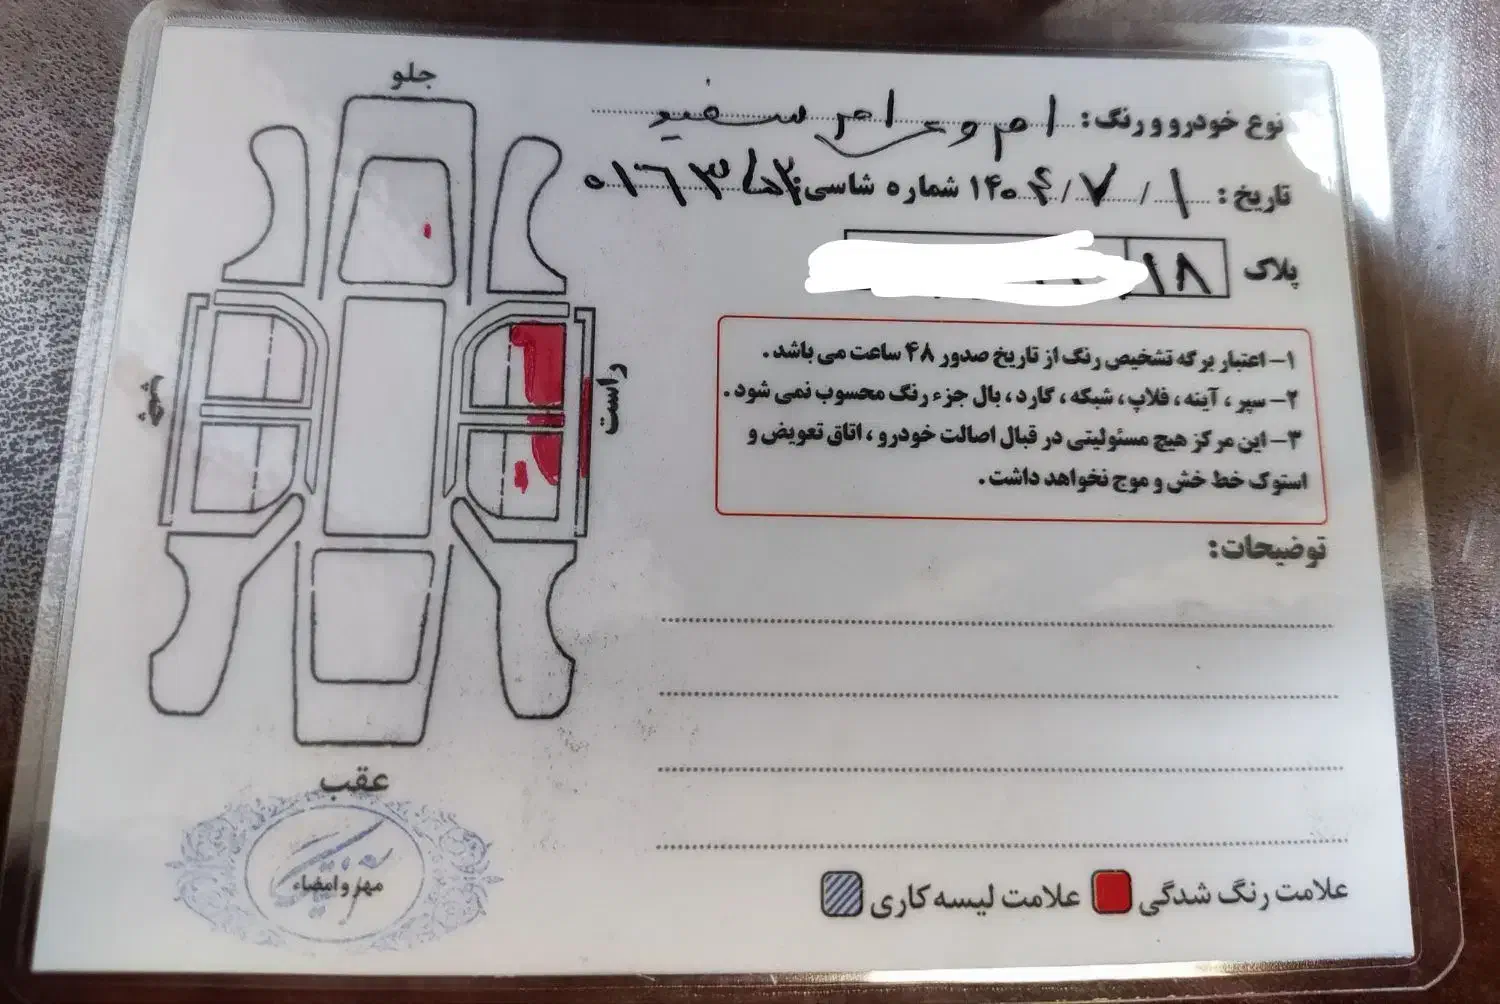 جلو
نوع خودرو و رنگ: ام وی ام سفید
تاریخ: ۱ / ۷ / ۱۴۰۴ شماره شاسی:
پلاک ۱۸
۱- اعتبار برگه تشخیص رنگ از تاریخ صدور ۴۸ ساعت می باشد.
۲- سپر ، آینه ، فلاپ ، شبکه ، گارد ، بال جزء رنگ محسوب نمی شود.
۳- این مرکز هیچ مسئولیتی در قبال اصالت خودرو ، اتاق تعویض و
استوک خط خش و موج نخواهد داشت.
راست
چپ
توضیحات:
عقب
مهر و امضاء
علامت رنگ شدگی
علامت لیسه کاری